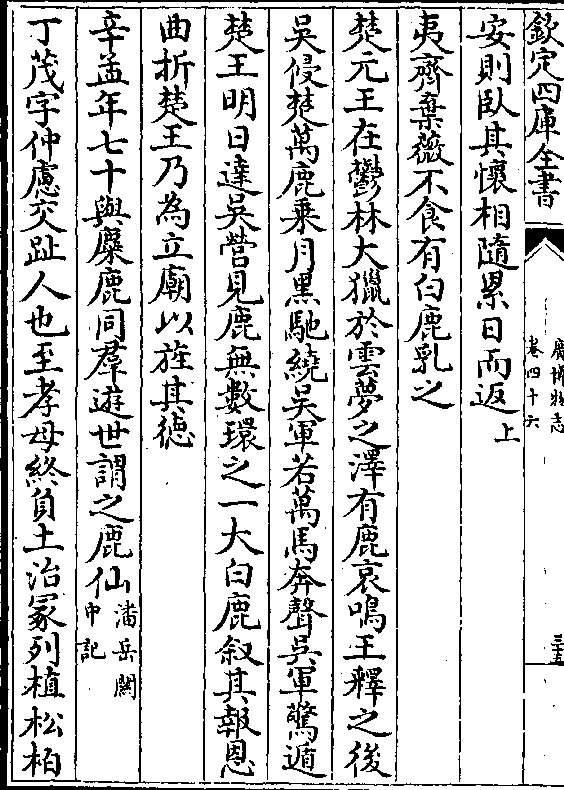 欽定四庫全書
廣博物志
卷四十六
三十五
安則臥其懷相隨累日而返上
夷齊棄薇不食有白鹿乳之
楚元王在鬱林大獵於雲夢之澤有鹿哀鳴王釋之後
吳侵楚萬鹿乘月黑馳繞吳軍若萬馬奔聲吳軍驚遁
楚王明日達吳營見鹿無數環之一大白鹿叙其報恩
曲折楚王乃為立廟以旌其德
辛孟年七十與麋鹿同羣遊世謂之鹿仙潘岳關中記
丁茂字仲慮交趾人也至孝母終負土治冢列植松柏